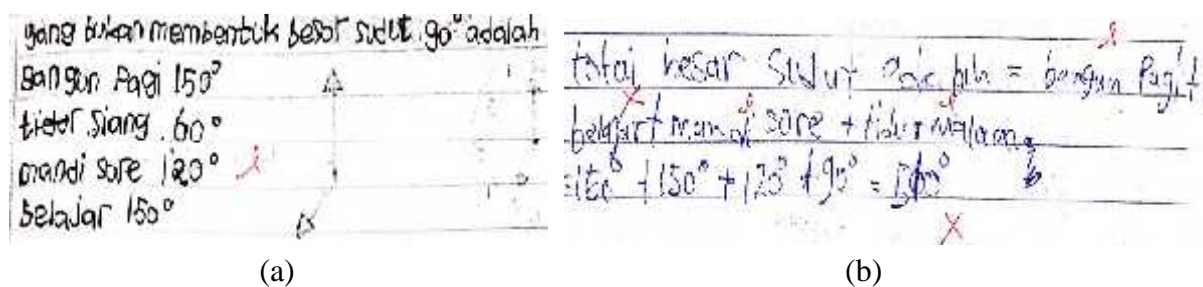 yang bukan membentuk besar sudut 90° adalah
Bangun Pagi 150°
tidur Siang .60°
mandi sore 120°
belajar 150°
total besar Sudut adalah = bangun Pagi +
belajar + mandi sore + tidur malam
= 150° + 150° + 120° + 90° =
(a)
(b)